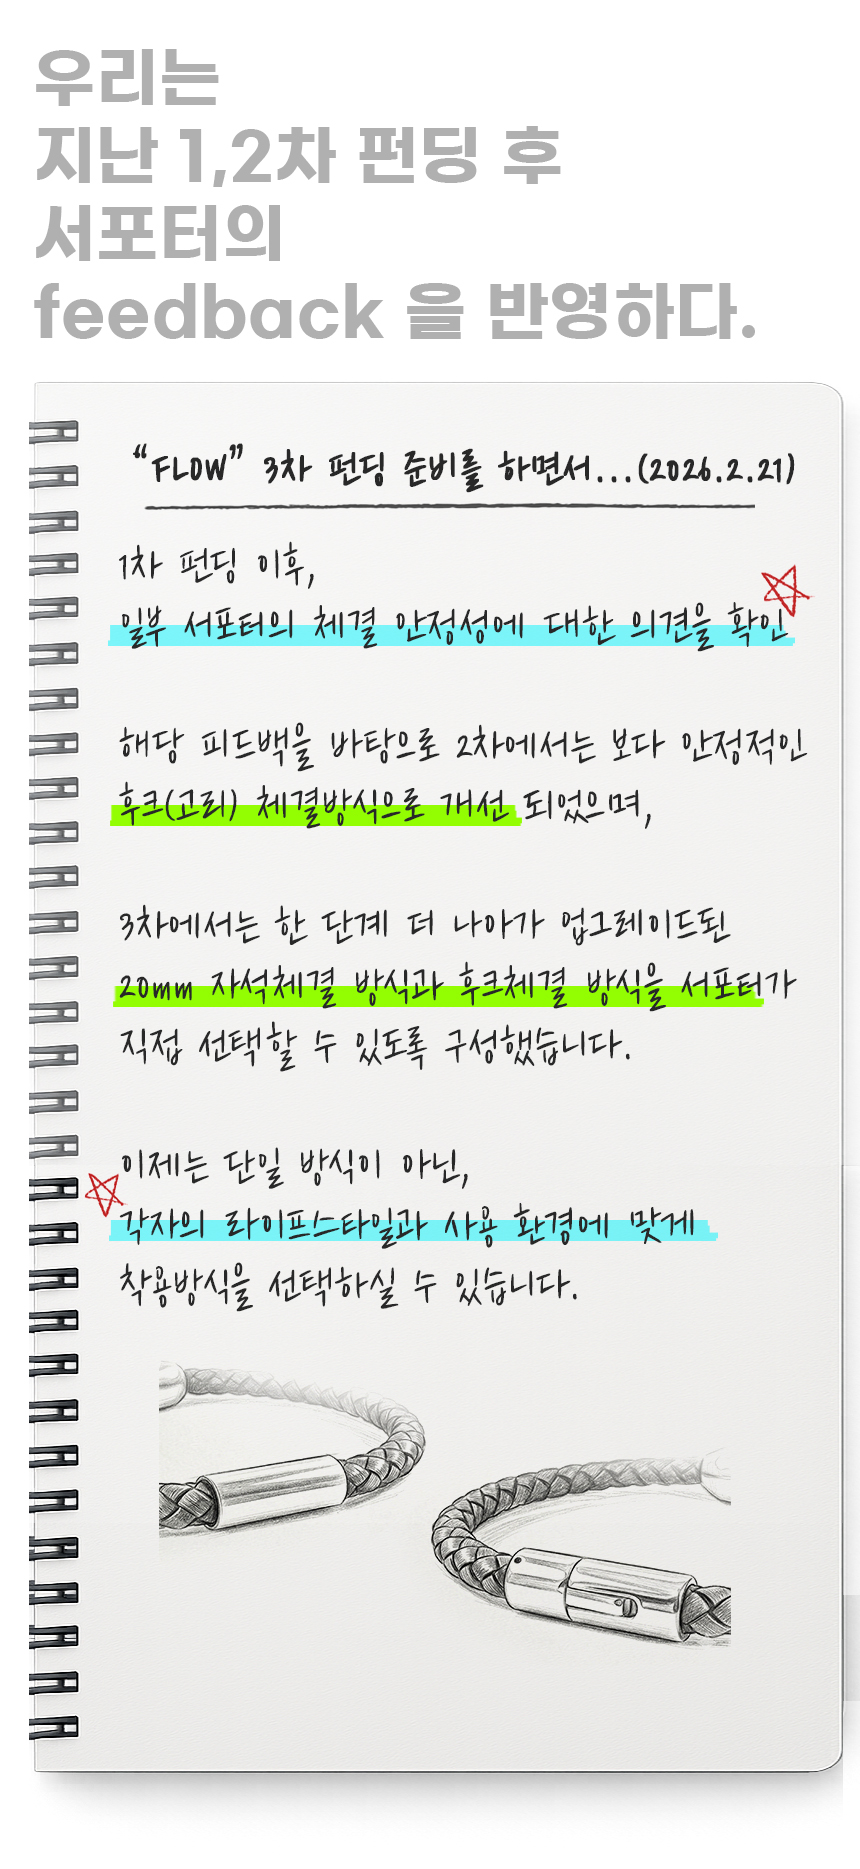 우리는
지난 1,2차 펀딩 후
서포터의
feedback 을 반영하다.
“FLOW” 3차 펀딩 준비를 하면서...(2026.2.21)
1차 펀딩 이후,
일부 서포터의 체결 안정성에 대한 의견을 확인
해당 피드백을 바탕으로 2차에서는 보다 안정적인
후크(고리) 체결방식으로 개선 되었으며,
3차에서는 한 단계 더 나아가 업그레이드된
20mm 자석체결 방식과 후크체결 방식을 서포터가
직접 선택할 수 있도록 구성했습니다.
이제는 단일 방식이 아닌,
각자의 라이프스타일과 사용 환경에 맞게
착용방식을 선택하실 수 있습니다.